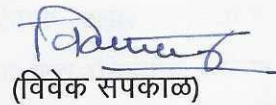 (विवेक सपकाळ)